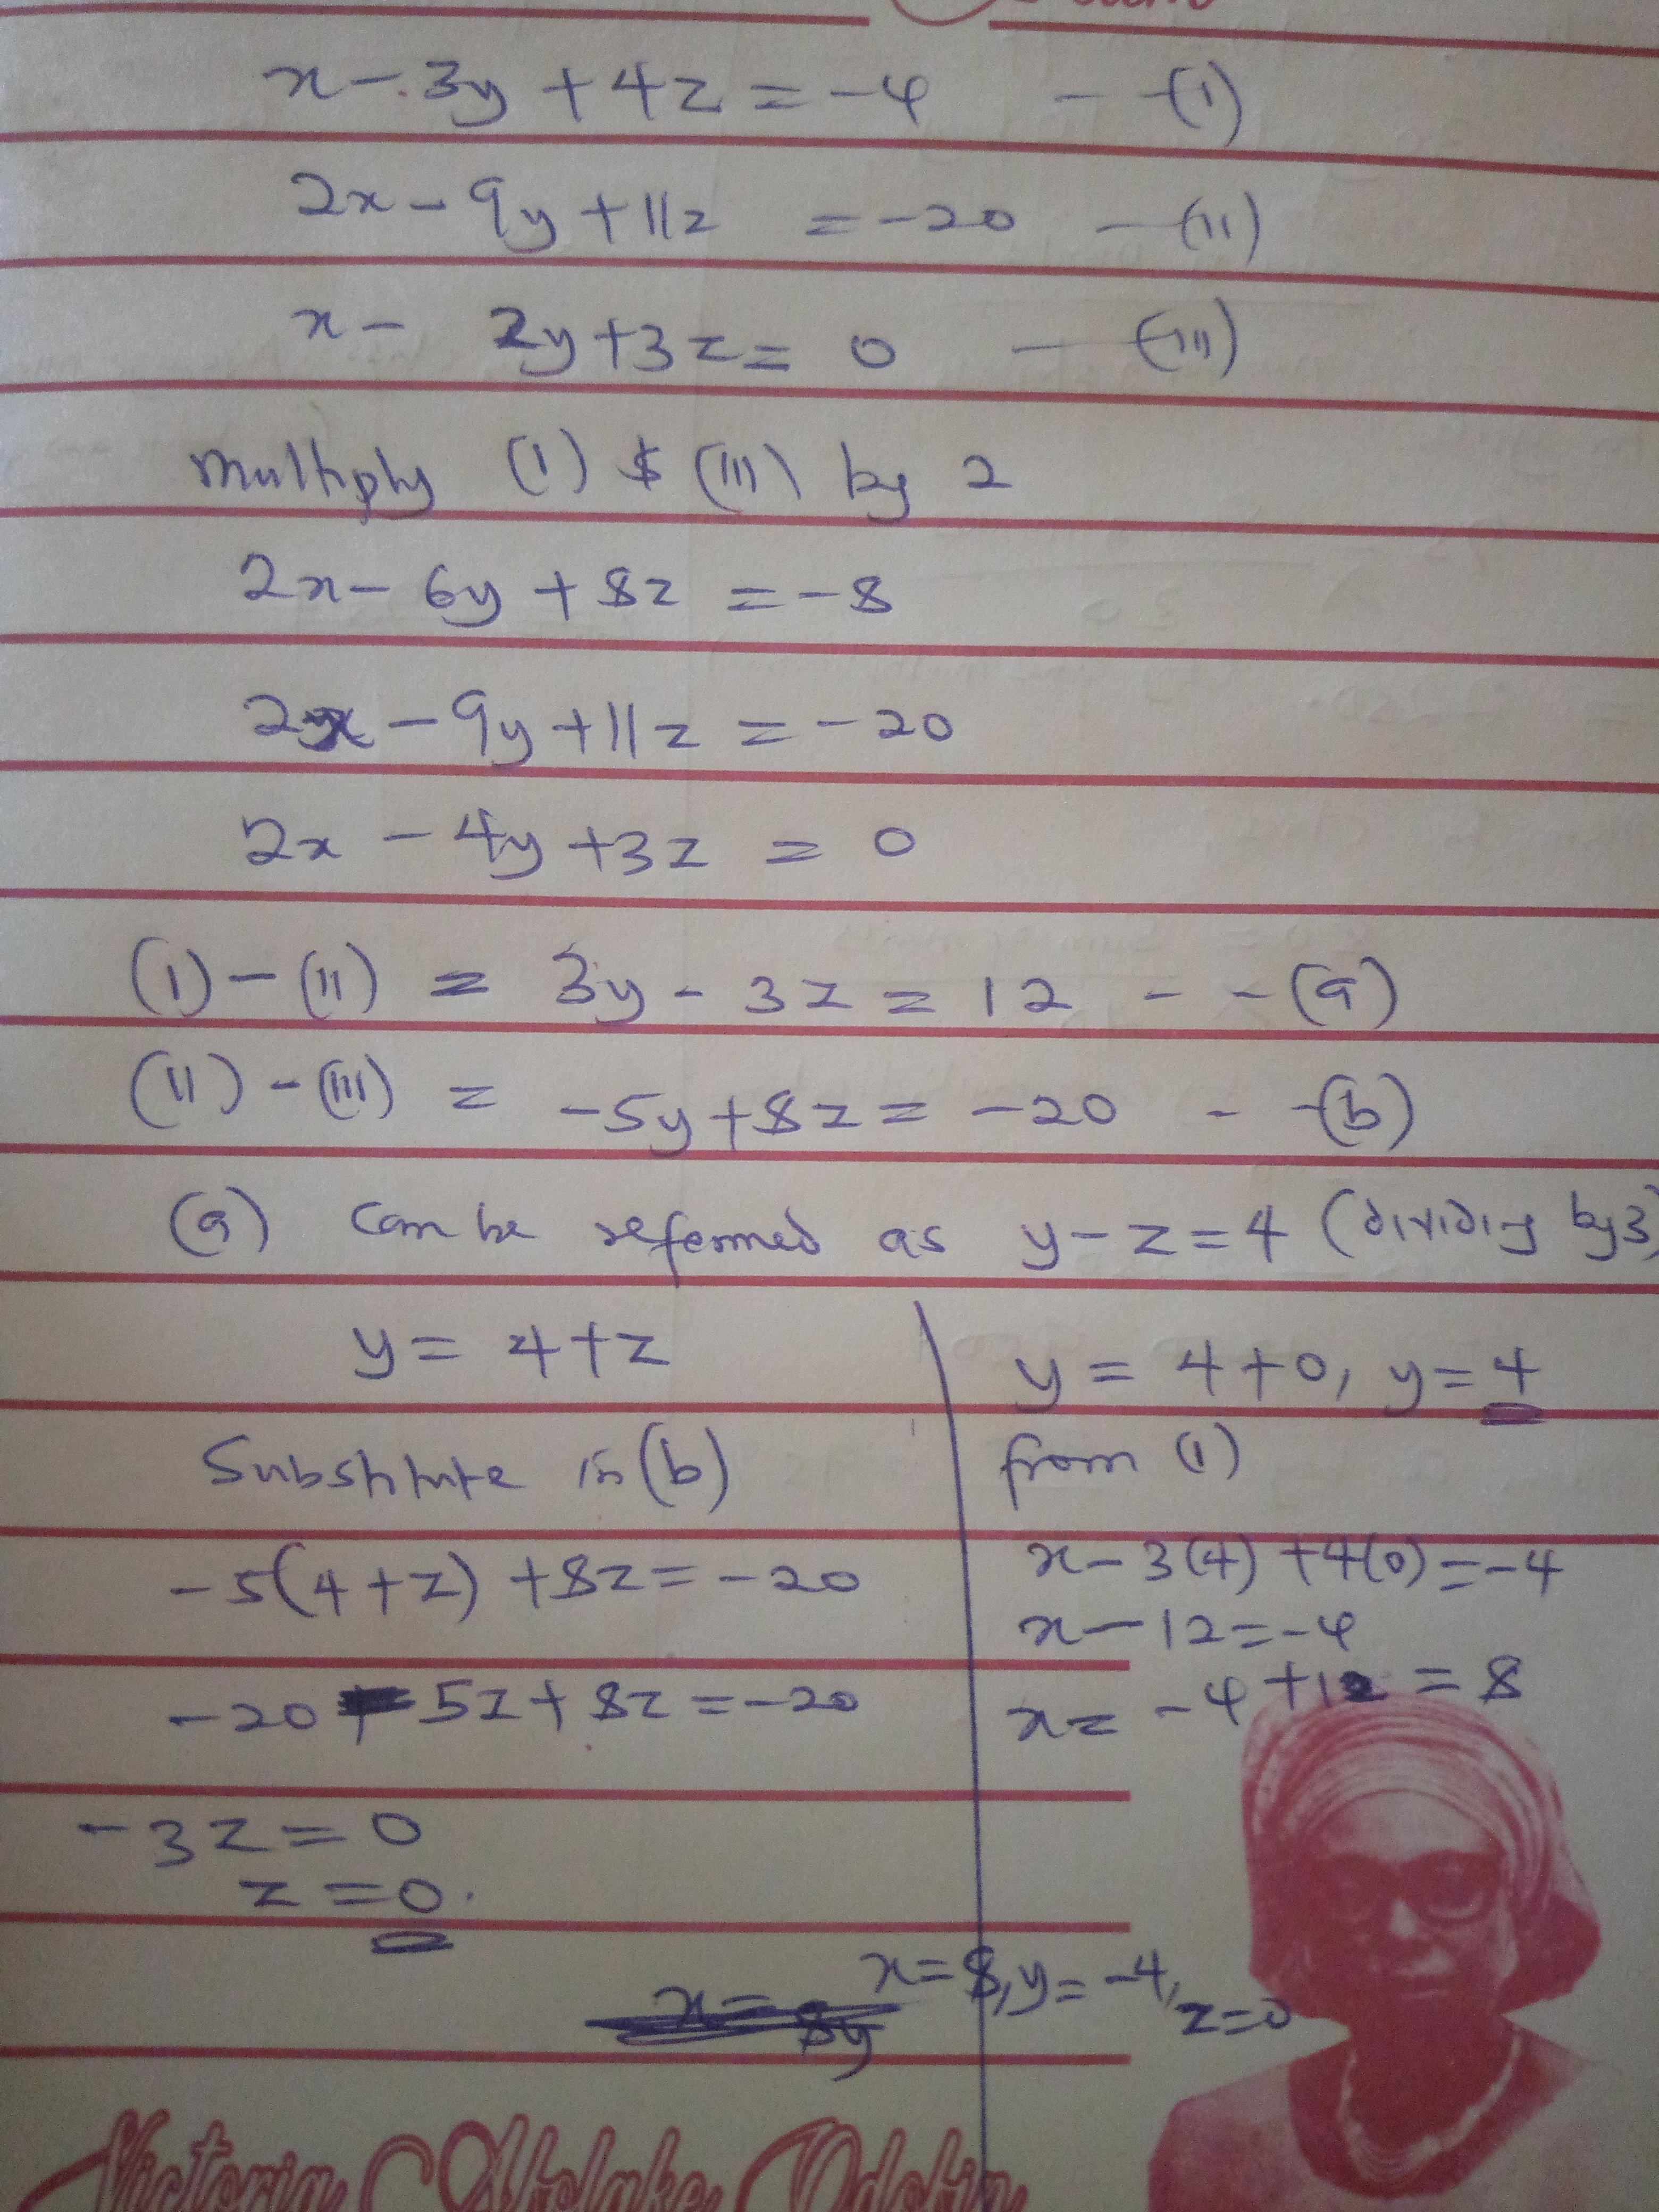 x - 3y + 4z = -4 - -(i)
2x - 9y + 11z = -20 - (ii)
x - 2y + 3z = 0 - (iii)
Multiply (i) & (iii) by 2
2x - 6y + 8z = -8
2x - 9y + 11z = -20
2x - 4y + 3z = 0
(i) - (ii) = 3y - 3z = 12 - - (a)
(ii) - (iii) = -5y + 8z = -20 - -(b)
(a) can be reformed as y - z = 4 (dividing by 3)
y = 4 + z
Substitute in (b)
-5(4 + z) + 8z = -20
-20 - 5z + 8z = -20
-3z = 0
z = 0.
y = 4 + 0, y = 4
from (i)
x - 3(4) + 4(0) = -4
x - 12 = -4
x = -4 + 12 = 8
x = 8, y = -4, z = 0
Victoria